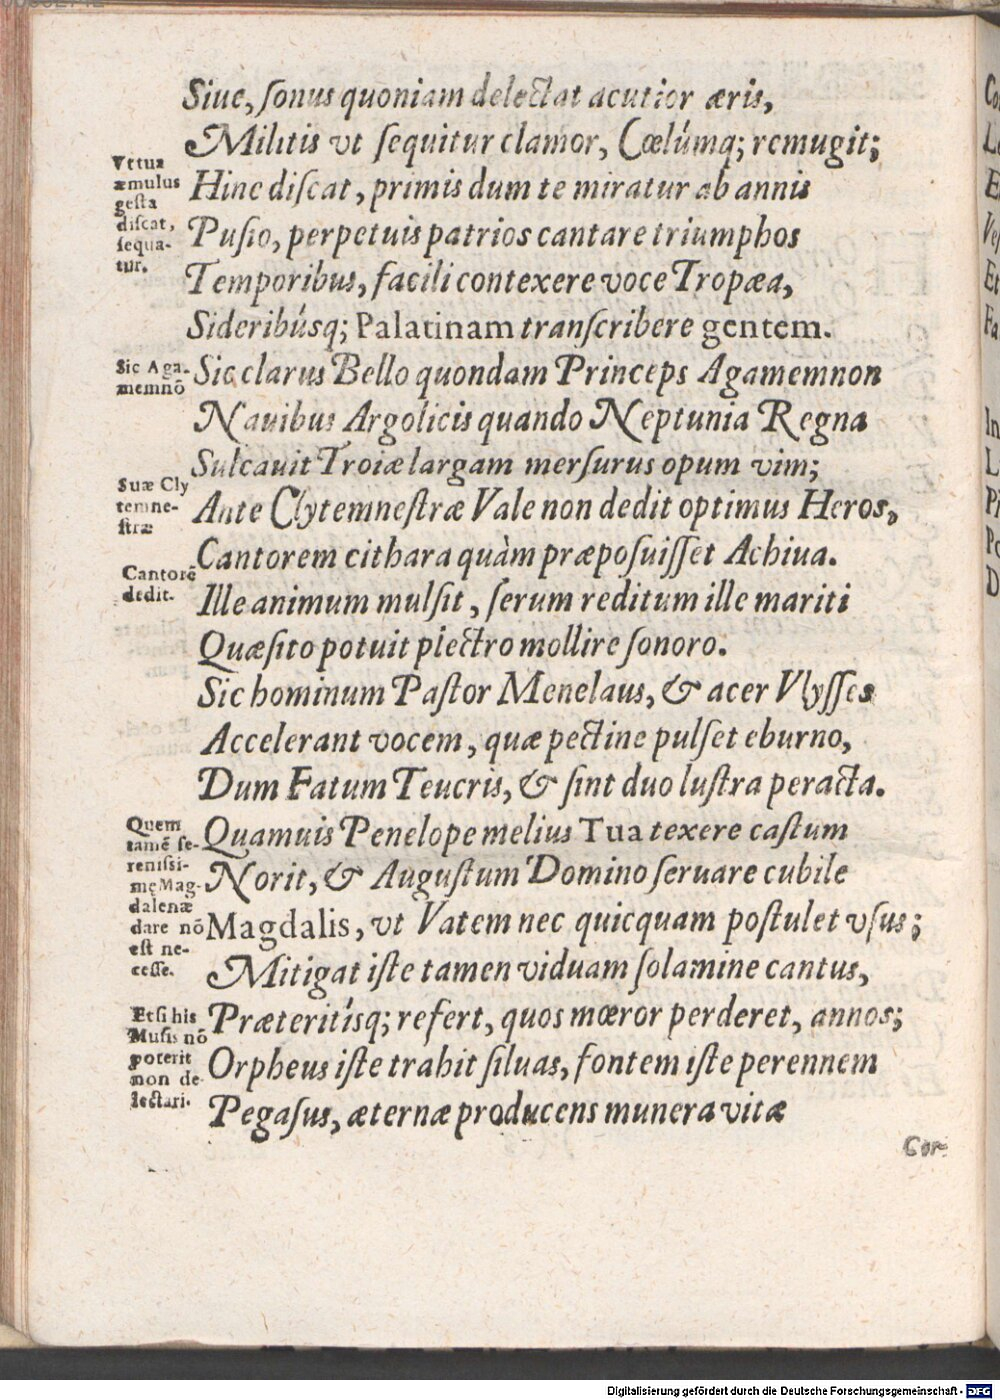 Siue, ſonus quoniam delectat acutior æris,
Militis vt ſequitur clamor, Cœlúmq; remugit;
Vt tua
æmulus
geſta
diſcat,
ſequa-
tur.
Hinc diſcat, primis dum te miratur ab annis
Puſio, perpetuis patrios cantare triumphos
Temporibus, facili contexere voce Tropæa,
Sideribúsq; Palatinam tranſcribere gentem.
Sic Aga-
memnō
Sic clarus Bello quondam Princeps Agamemnon
Nauibus Argolicis quando Neptunia Regna
Sulcauit Troiæ largam merſurus opum vim;
Suæ Cly
temne-
ſtræ
Ante Clytemneſtræ Vale non dedit optimus Heros,
Cantorem cithara quàm præpoſuiſſet Achiua.
Cantorē
dedit.
Ille animum mulſit, ſerum reditum ille mariti
Quæſito potuit plectro mollire ſonoro.
Sic hominum Paſtor Menelaus, & acer Vlyſſes
Accelerant vocem, quæ pectine pulſet eburno,
Dum Fatum Teucris, & ſint duo luſtra peracta.
Quem
tamē ſe-
reniſſi-
mę Mag-
dalenæ
dare nō
eſt ne-
ceſſe.
Quamuis Penelope melius Tua texere caſtum
Norit, & Auguſtum Domino ſeruare cubile
Magdalis, vt Vatem nec quicquam poſtulet vſus;
Mitigat iſte tamen viduam ſolamine cantus,
Etſi his
Muſis nō
poterit
non de-
lectari.
Præteritísq; refert, quos mœror perderet, annos;
Orpheus iſte trahit ſiluas, fontem iſte perennem
Pegaſus, æternæ producens munera vitæ
Cor-
Digitalisierung gefördert durch die Deutsche Forschungsgemeinschaft - DFG